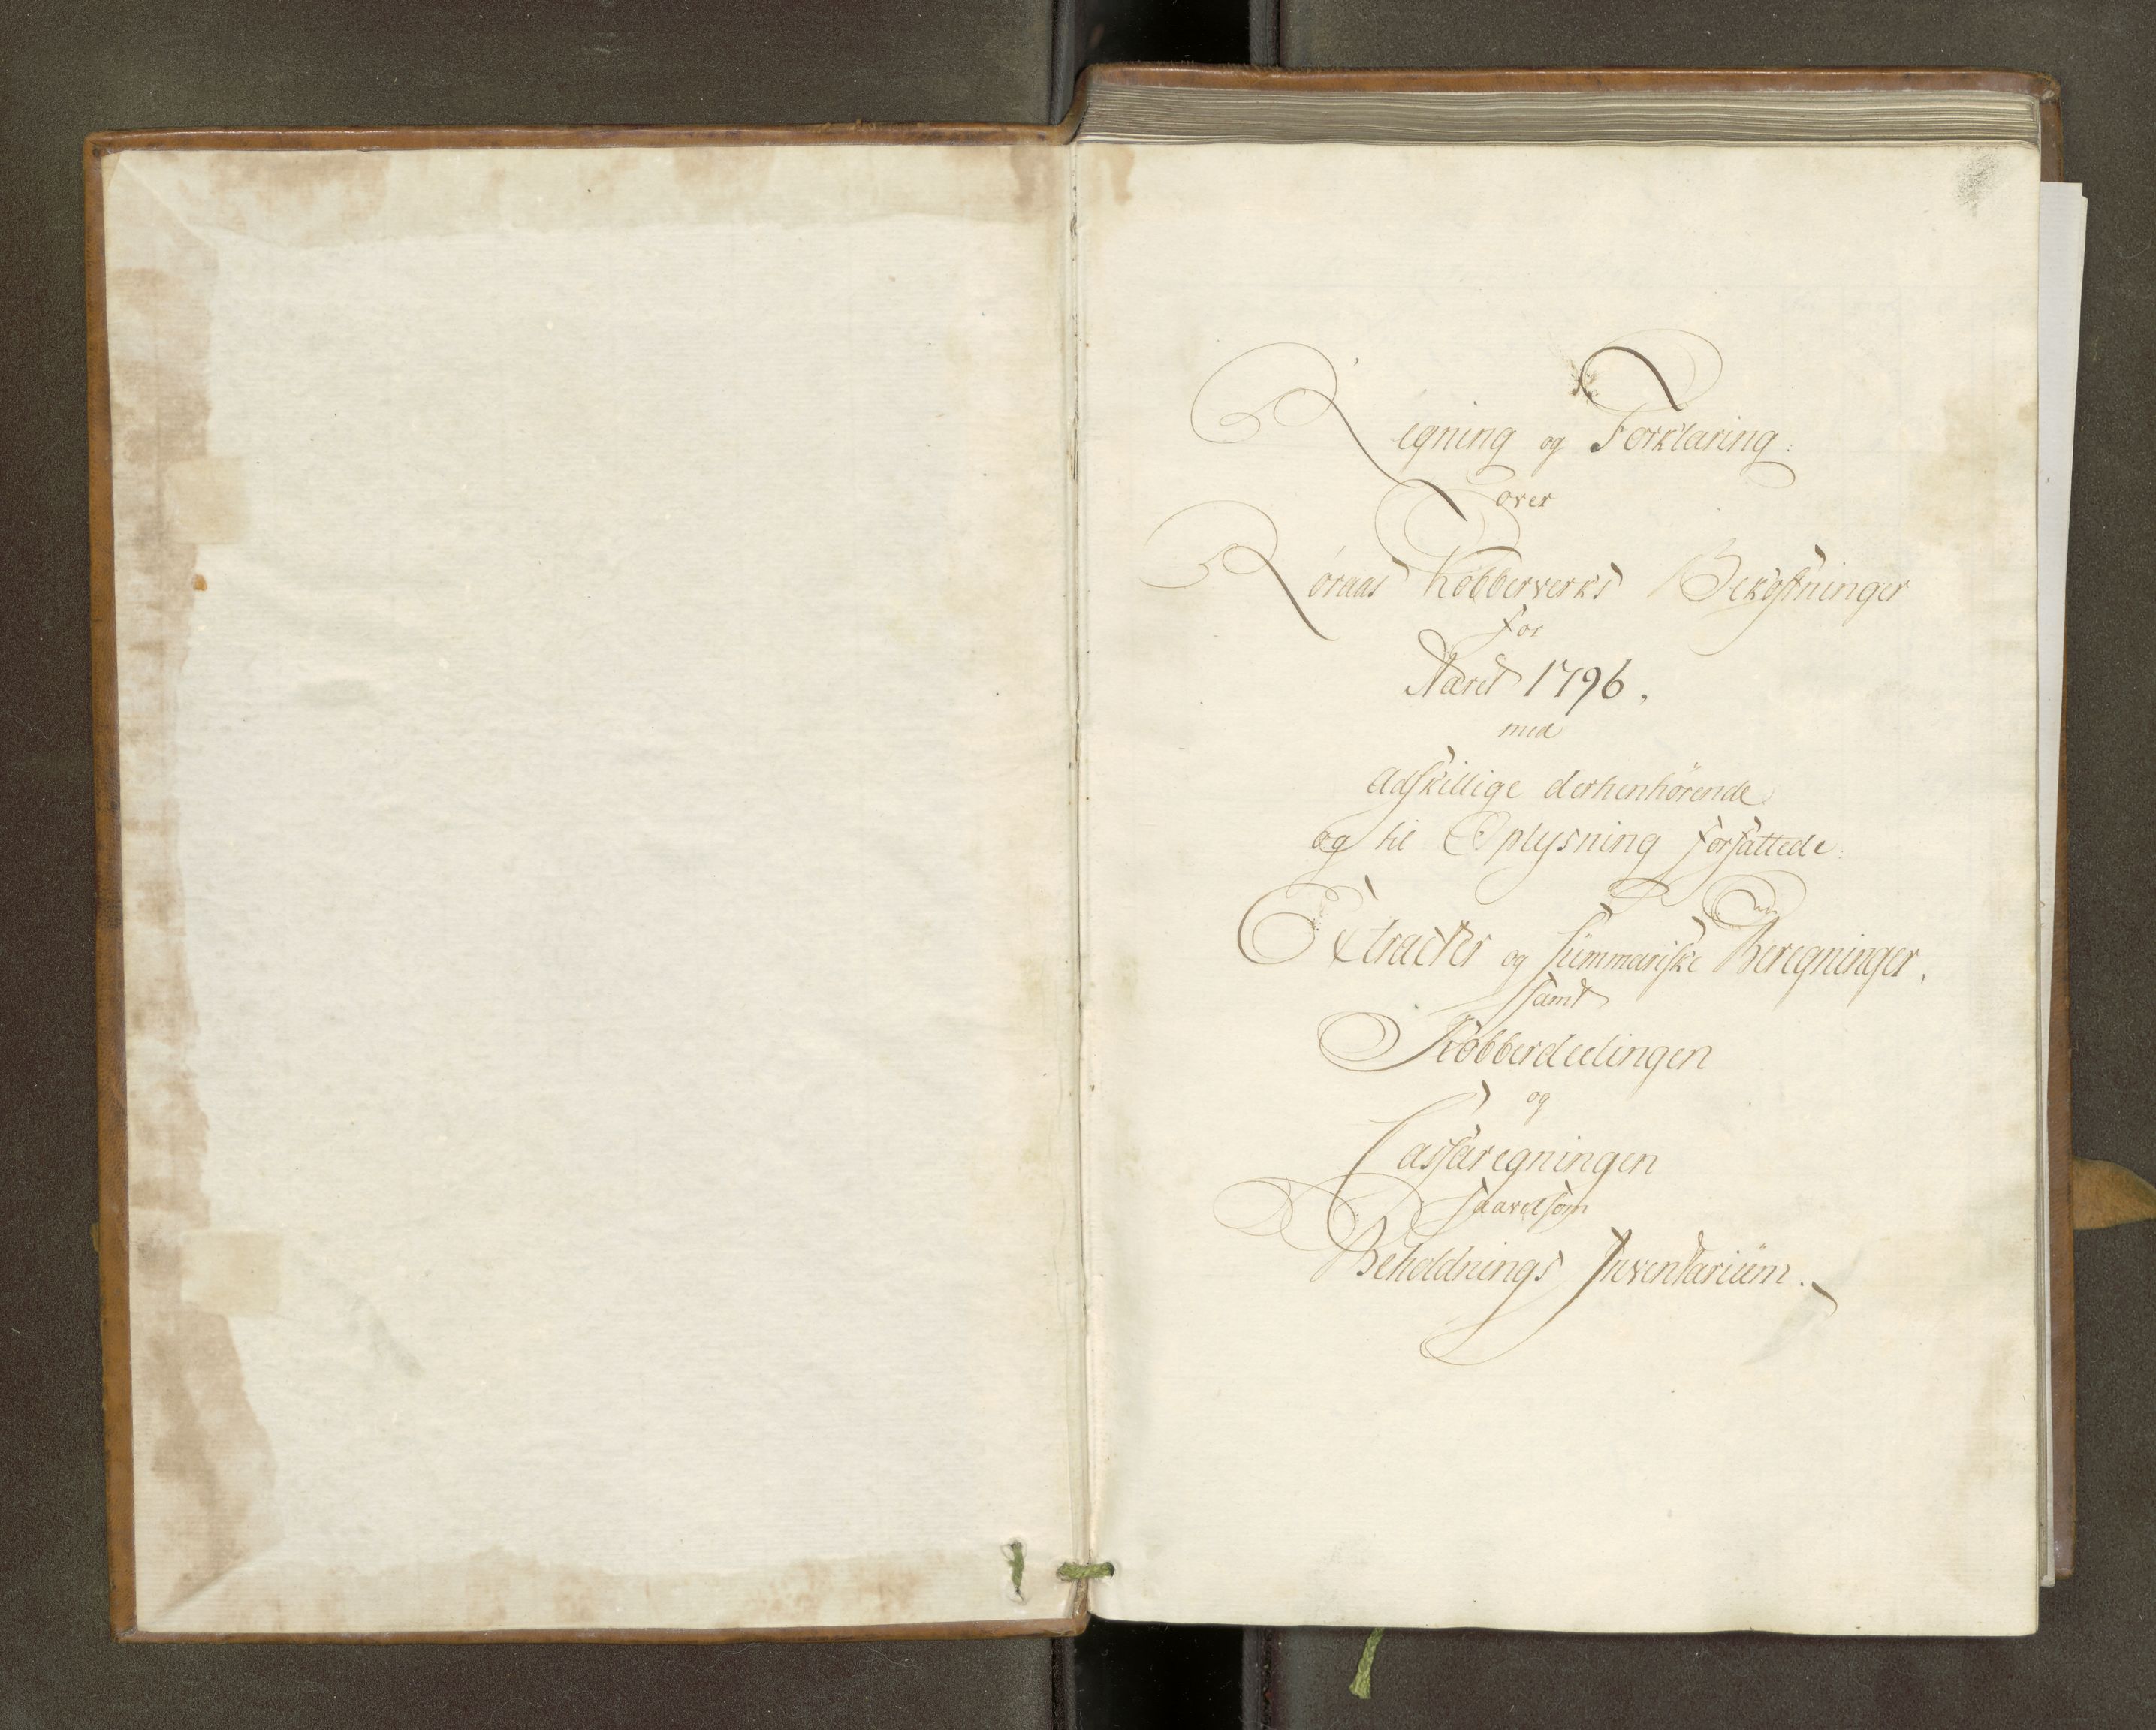 Regning og Forklaring
over
Røraas Kobberverks Bekostninger
for
Aaret 1796.
med
adskillige derhenhörende
og til Oplysning forfattede
Extracter og summariske Beregninger,
samt
Kobberdeelingen
og
Cassaregningen
saavelsom
Beholdnings Inventarium.